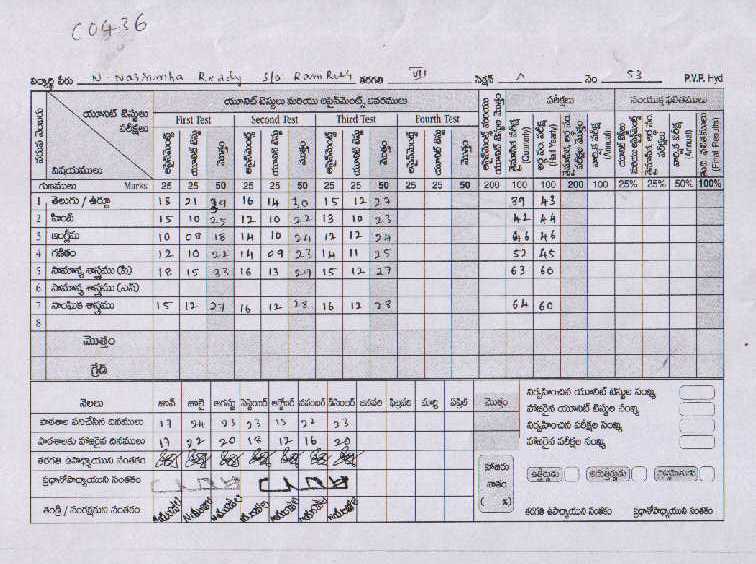 C0436
విద్యార్థి పేరు N. Narsimha Reddy S/o Ram Reddy తరగతి VIII సెక్షన్ A నెం 53 P.V.P. Hyd
వరుస నెంబరు యూనిట్ టెస్టులు పరీక్షలు విషయములు యూనిట్ టెస్టులు మరియు అసైన్‌మెంట్స్ వివరములు పరీక్షలు సంయుక్త ఫలితములు
First Test Second Test Third Test Fourth Test
అసైన్‌మెంట్స్ యూనిట్ టెస్ట్ మొత్తం అసైన్‌మెంట్స్ యూనిట్ టెస్ట్ మొత్తం అసైన్‌మెంట్స్ యూనిట్ టెస్ట్ మొత్తం అసైన్‌మెంట్స్ యూనిట్ టెస్ట్ మొత్తం (Quarterly) (Half Yearly) (Annual) (Annual) (Final Results)
గుణములు Marks 25 25 50 25 25 50 25 25 50 25 25 50 200 100 100 200 100 25% 25% 50% 100%
1 తెలుగు / ఉర్దూ 18 21 39 16 14 30 15 12 27 39 43
2 హిందీ 15 10 25 12 10 22 13 10 23 42 44
3 ఇంగ్లీషు 10 08 18 14 10 24 12 12 24 46 46
4 గణితం 12 10 22 14 09 23 14 11 25 52 45
5 సామాన్య శాస్త్రము 18 15 33 16 13 29 15 12 27 63 60
6 సామాన్య శాస్త్రము
7 సాంఘిక శాస్త్రము 15 12 27 16 12 28 16 12 28 64 60
8
మొత్తం
గ్రేడ్
నెలలు జూన్ జూలై ఆగష్టు సెప్టెంబర్ అక్టోబర్ నవంబర్ డిసెంబర్ జనవరి ఫిబ్రవరి మార్చి ఏప్రిల్ మొత్తం
పాఠశాల పనిచేసిన దినములు 17 24 23 23 13 22 23
పాఠశాలకు హాజరైన దినములు 17 22 20 18 12 16 20
తరగతి ఉపాధ్యాయుని సంతకం
ప్రధానోపాధ్యాయుని సంతకం
తండ్రి / సంరక్షకుని సంతకం
హాజరు శాతం ( %)
నిర్వహించిన యూనిట్ టెస్టుల సంఖ్య
హాజరైన యూనిట్ టెస్టుల సంఖ్య
నిర్వహించిన పరీక్షల సంఖ్య
హాజరైన పరీక్షల సంఖ్య
తరగతి ఉపాధ్యాయుని సంతకం ప్రధానోపాధ్యాయుని సంతకం